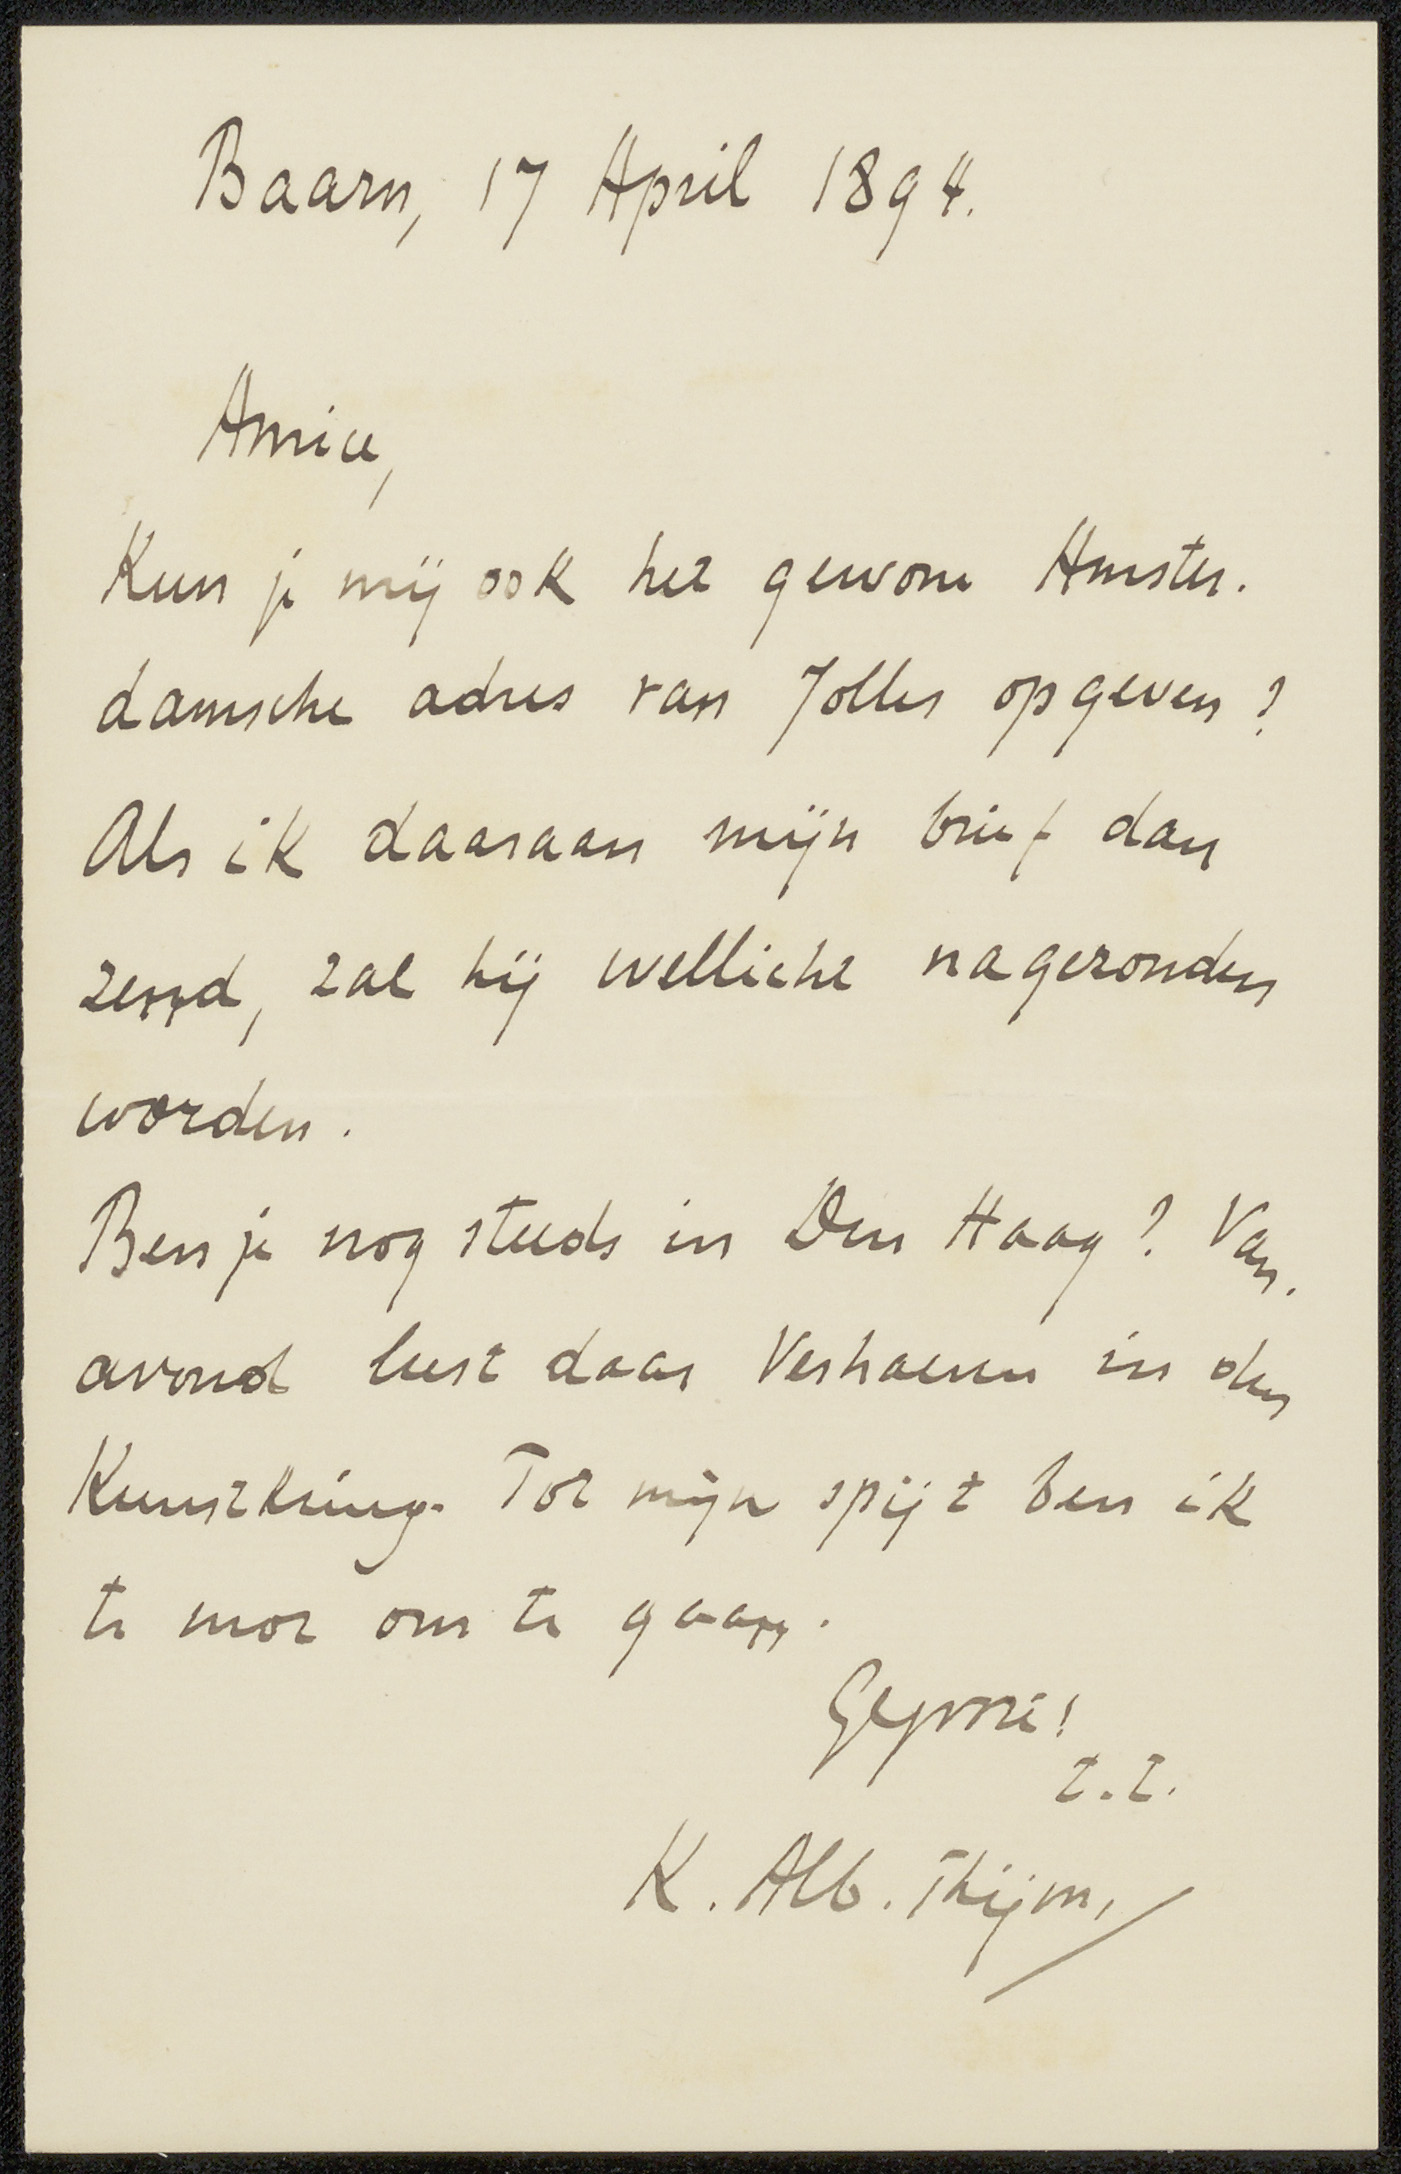 Baarn, 17 April 1894.
Amice,
Kun je mij ook het gewone Amster-
damsche adres van Jolles opgeven?
Als ik daaraan mijn brief dan
zend, zal hij wellicht nagezonden
worden.
Ben je nog steeds in Den Haag? Van-
avond leest daar Verhaeren in den
Kunstkring. Tot mijn spijt ben ik
te moe om te gaan.
t.t.
K. Alb. Thijm,